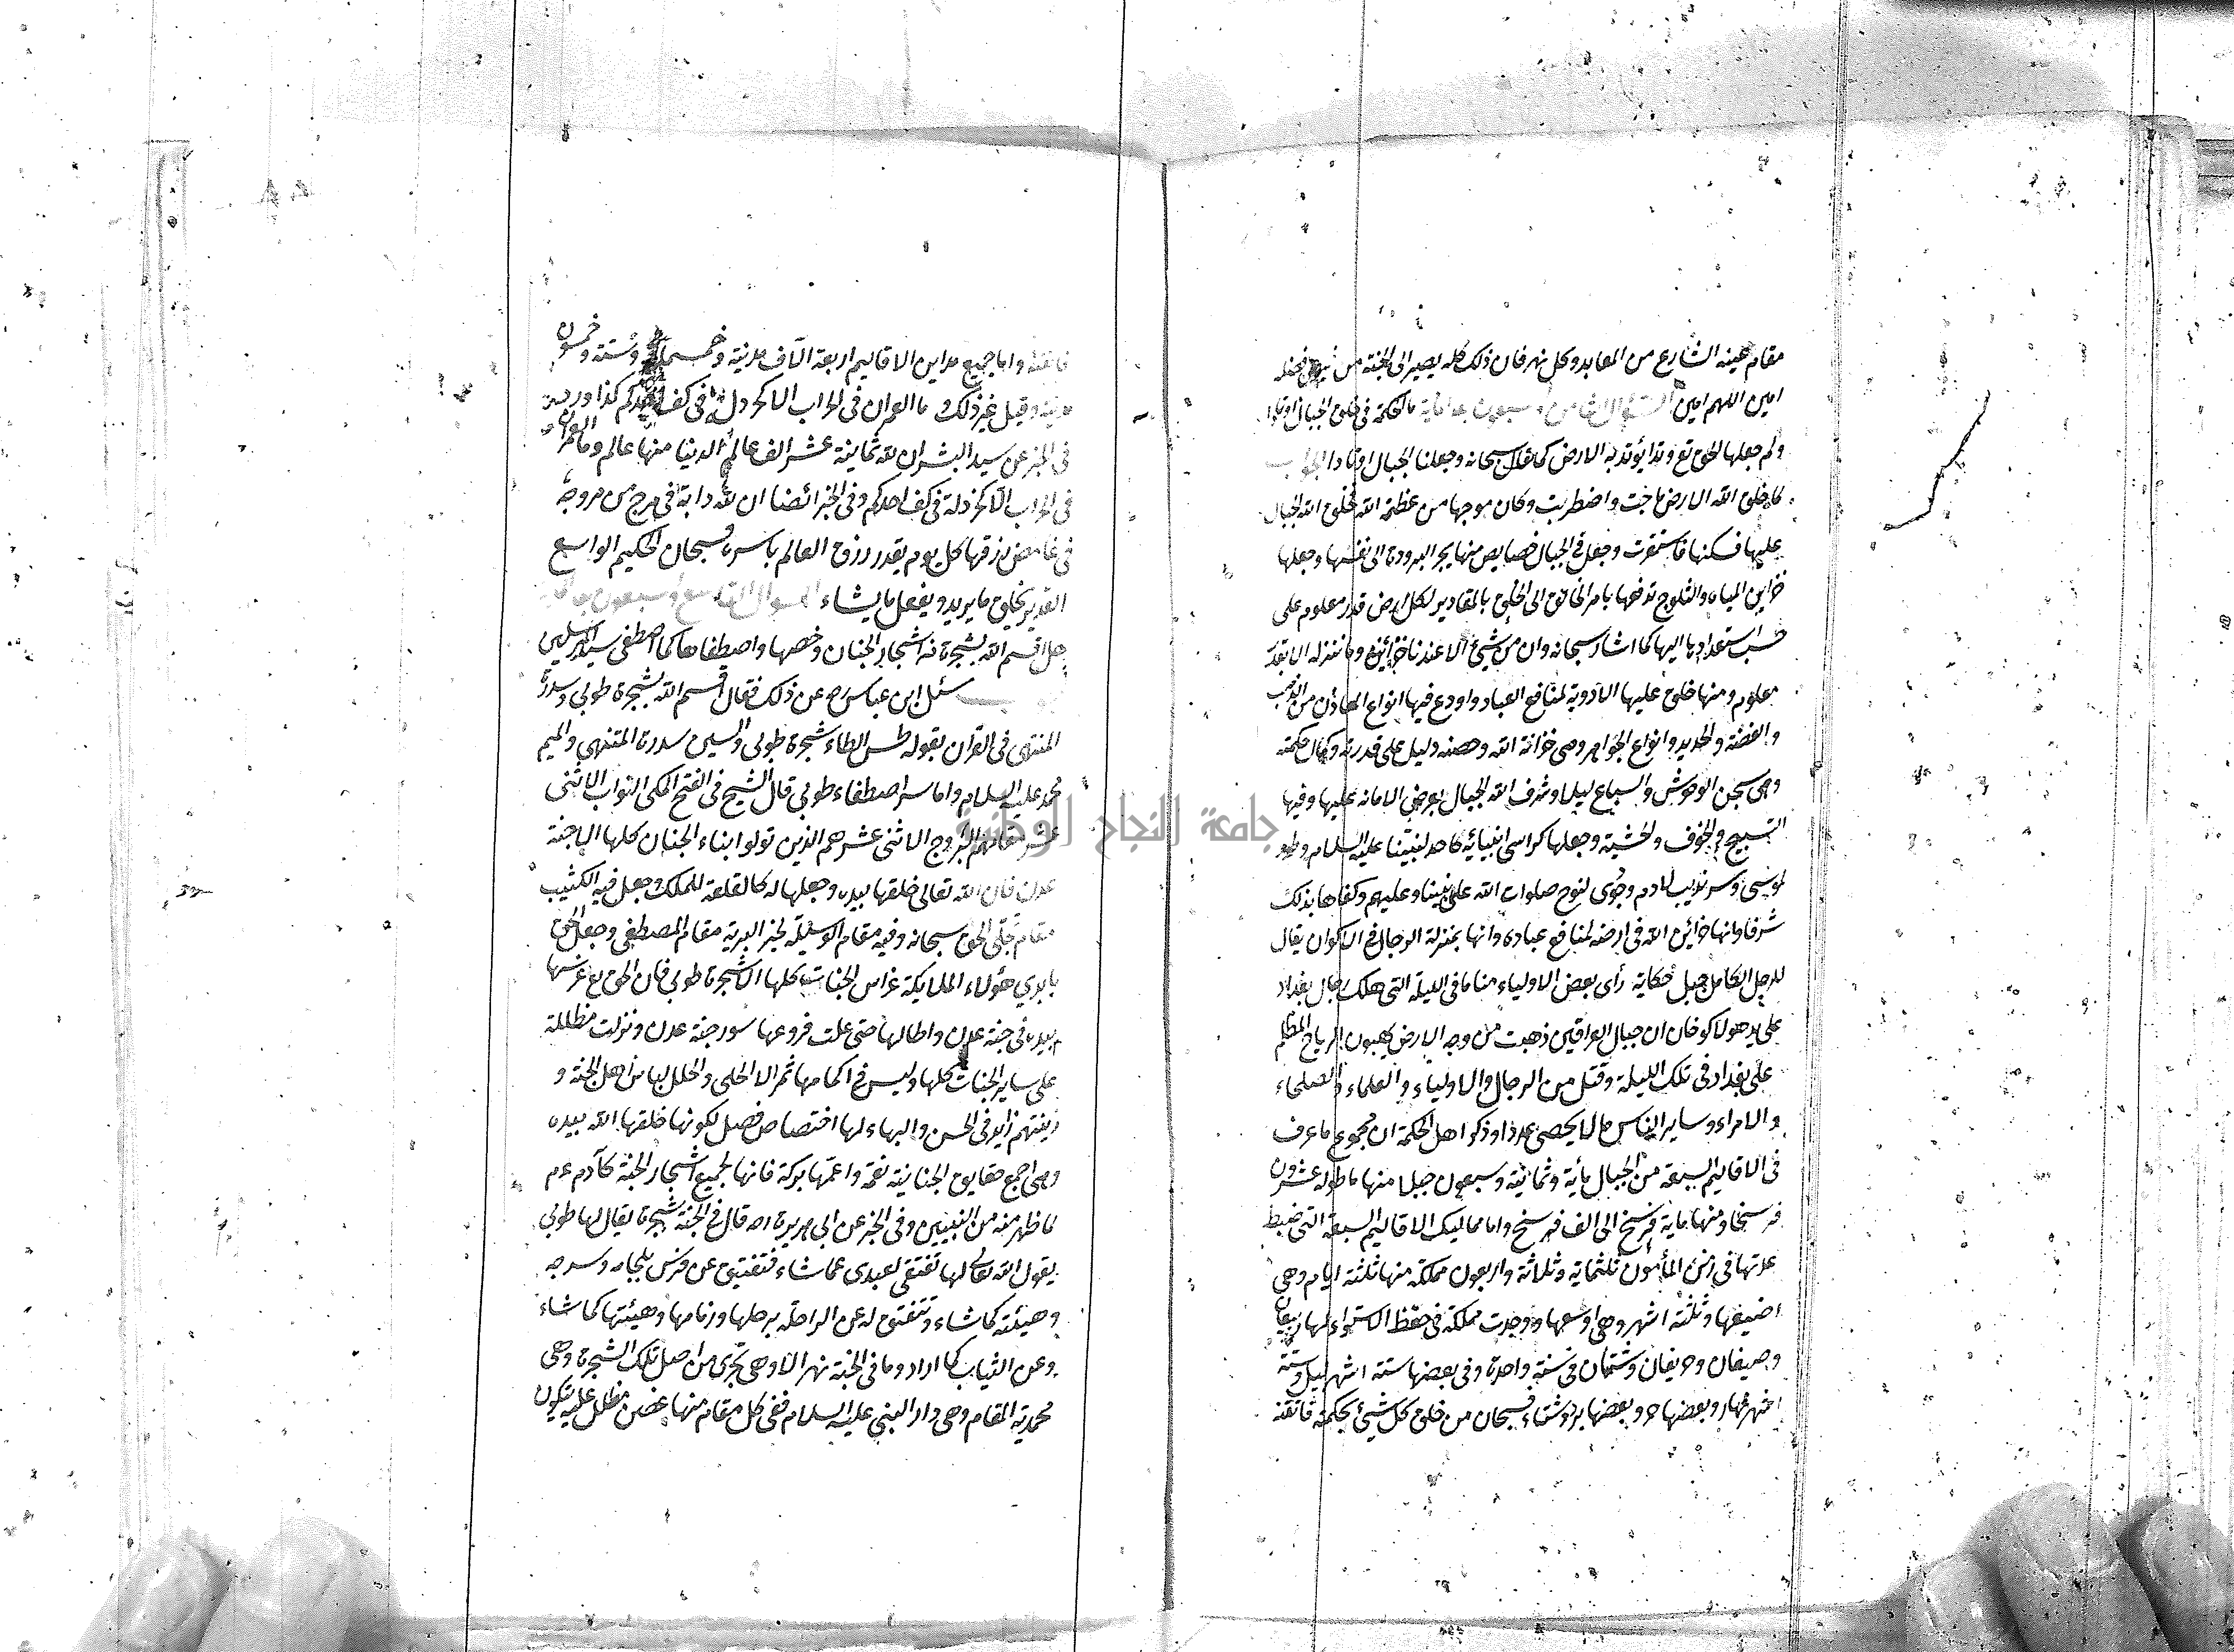 مقام عينه الشارع من المعابد وكل نهر فان ذلك كله يصير الى الجنة من
امين اللهم امين السؤال الثامن وسبعون بعد المأية ما الحكمة فى خلق الجبال اوتادا
ولم جعلها الحق تع وتدا يوتد به الارض كما قال سبحانه وجعلنا الجبال اوتادا الجواب
لما خلق الله الارض ماجت واضطربت وكان موجها من عظمة الله فخلق الله الجبال
عليها فسكنها فاستقرت وجعل فى الجبال خصايص منها يجر البرودة الى نفسها وجعلها
خزاين المياه والثلوج تدفعها بامر الخالق الى الخلق بالمقادير لكل ارض قدر معلوم على
حسب استعدادها اليها كما اشار سبحانه وان من شيئ الا عندنا خزائنه وما ننزله الا بقدر
معلوم ومنها خلق عليها الادوية لمنافع العباد واودع فيها انواع المعادن من الذهب
والفضة والحديد وانواع الجواهر وهى خزانة الله وحصنه دليل على قدرته وكمال حكمته
وهى سجن الوحوش والسباع ليلا وشرف الله الجبال بعرض الامانه عليها وفيها
التسبيح والخوف والخشية وجعلها كراسى انبيائه كاحد لنبينا عليه السلام وطور
لموسى وسرنديب لادم وجودى لنوح صلوات الله على نبينا وعليهم وكفاها بذلك
شرفا وانها خزائن الله فى ارضه لمنافع عباده وانها بمنزلة الرجال فى الاكوان يقال
للرجل الكامل جبل حكاية رأى بعض الاولياء مناما فى الليلة التى هلك رجال بغداد
على يد هولاكو خان ان جبال العراقين ذهبت من وجه الارض بهبوب الرياح المظلم
على بغداد فى تلك الليلة وقتل من الرجال والاولياء والعلماء والصلحاء
والامراء وساير الناس مالا يحصى عددا وذكر اهل الحكمة ان مجموع ما عرف
فى الاقاليم السبعة من الجبال مأية وثمانية وسبعون جبلا منها ما طوله عشرون
فرسخا ومنها ماية فرسخ الى الف فرسخ واما مماليك الاقاليم السبعة التى ضبط
عدتها فى زمن المأمون ثلثماية وثلاثة واربعون مملكة منها ثلثة ايام وهى
اضيقها وثلثة اشهر وهى اوسعها ووجدت مملكة فى خط الاستواء لها ربيعان
وصيفان وخريفان وشتاءان فى سنة واحدة وفى بعضها ستة اشهر ليل وستة
اشهر نهار وبعضها حر وبعضها برد وشتاء فسبحان من خلق كل شيئ بحكمة فاتقنه
فاتقنه واما جميع مداين الاقاليم اربعة الآف مدينة وخمسماية وستة وخمسون
مدينة وقيل غير ذلك وما العمران فى الخراب الا كخردل فى كف احدكم كذا ورد
فى الخبر عن سيد البشر ان لله ثمانية عشر الف عالم الدنيا منها عالم وما العمران
فى الخراب الا كخردلة فى كف احدكم وفى الخبر ائضا ان لله دابة فى مرج من مروجه
فى غامض رزقها كل يوم يقدر رزق العالم باسره فسبحان الحكيم الواسع
القدير يخلق ما يريد ويفعل ما يشاء السؤال التاسع وسبعون بعد المأية
هل اقسم الله بشجرة من اشجار الجنان وخصها واصطفاها كما اصطفى سيد المرسلين
الجواب سئل ابن عباس رض عن ذلك فقال اقسم الله بشجرة طوبى وسدرة
المنتهى فى القرآن بقوله طسم الطاء شجرة طوبى والسين سدرة المنتهى والميم
محمد عليه السلام واما سر اصطفاء طوبى قال الشيخ فى الفتح المكى النواب الاثنى
عشر مقامهم البروج الاثنى عشر هم الذين تولوا بناء الجنان كلها الا جنة
عدن فان الله تعالى خلقها بيده وجعلها له كالقلعة للملك وجعل فيه الكثيب
مقام تجلى الحق سبحانه وفيه مقام الوسيلة لخير البرية مقام المصطفى وجعل الحق
بايدى هؤلاء الملايكة غراس الجنات كلها الا شجرة طوبى فان الحق تع غرسها
بيده فى جنة عدن واطالها حتى علت فروعها سور جنة عدن ونزلت مظللة
على ساير الجنات كلها وليس فى اكمامها ثمر الا الحلى والحلل لباس اهل الجنة و
زينتهم زايد فى الحسن والبهاء لها اختصاص فضل لكونها خلقها الله بيده
وهى اجمع حقايق الجنانية نعمة واعمها بركة فانها لجميع اشجار الجنة كآدم عم
لما ظهر منه من النبيين وفى الخبر عن ابى هريرة انه قال فى الجنة شجرة يقال لها طوبى
يقول الله تعالى لها تفتقى لعبدى عما شاء فتفتق عن فرس بلجامه وسرجه
وهيئته كما شاء وتتفتق له عن الراحلة برحلها وزمامها وهيئتها كما شاء
وعن الثياب كما اراد وما فى الجنة نهر الا وهى تجرى من اصل تلك الشجرة وهى
محمدية المقام وهى دار النبى عليه السلام ففى كل مقام منها غصن مظلل عليه
جامعة النجاح الوطنية